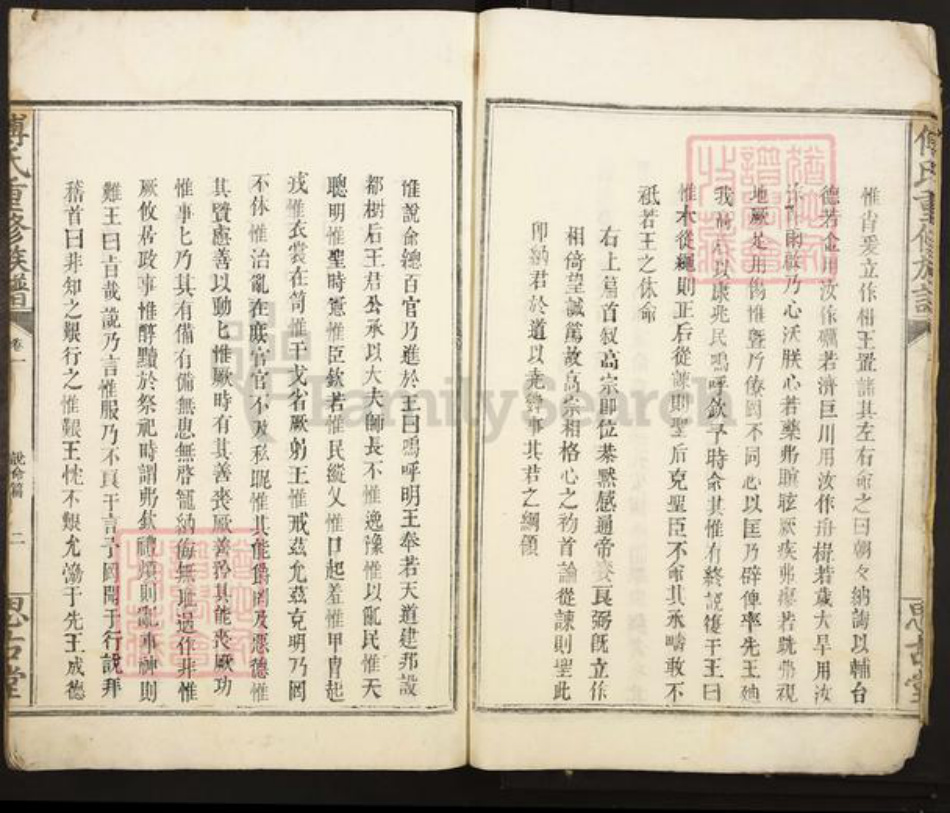 傅氏重修族譜
思古堂
惟肖爰立作相王置諸其左右命之曰朝々納誨以輔台
德若金用汝作礪若濟巨川用汝作舟楫若歲大旱用汝
作霖雨啟乃心沃朕心若藥弗瞑眩厥疾弗瘳若跣弗視
地厥足用傷惟曁乃僚罔不同心以匡乃辟俾率先王廸
我高后以康兆民嗚呼欽予時命其惟有終説復于王曰
惟木從繩則正后從諫則聖后克聖臣不命其承疇敢不
祇若王之休命
右上篇首叙高宗即位恭黙感通帝賚良弼旣立作
相倚望誠篤故高宗相格心之初首論從諫則聖此
即納君於道以堯舜事其君之綱領
惟說命總百官乃進於王曰嗚呼明王奉若天道建邦設
都樹后王君公承以大夫師長不惟逸豫惟以亂民惟天
聰明惟聖時憲惟臣欽若惟民縱乂惟口起羞惟甲胄起
戎惟衣裳在笥惟干戈省厥躬王惟戒茲允茲克明乃罔
不休惟治亂在庶官官不及私昵惟其能爵罔及惡德惟
其賢慮善以動匕惟厥時有其善喪厥善矜其能喪厥功
惟事匕乃其有備有備無患無啓寵納侮無恥過作非惟
厥攸居政事惟醇黷於祭祀時謂弗欽禮煩則亂事神則
難王曰旨哉說乃言惟服乃不良于言予罔聞于行說拜
稽首曰非知之艱行之惟艱王忱不艱允協于先王成德
傅氏重修族譜
卷一
說命篇
二
思古堂
FamilySearch